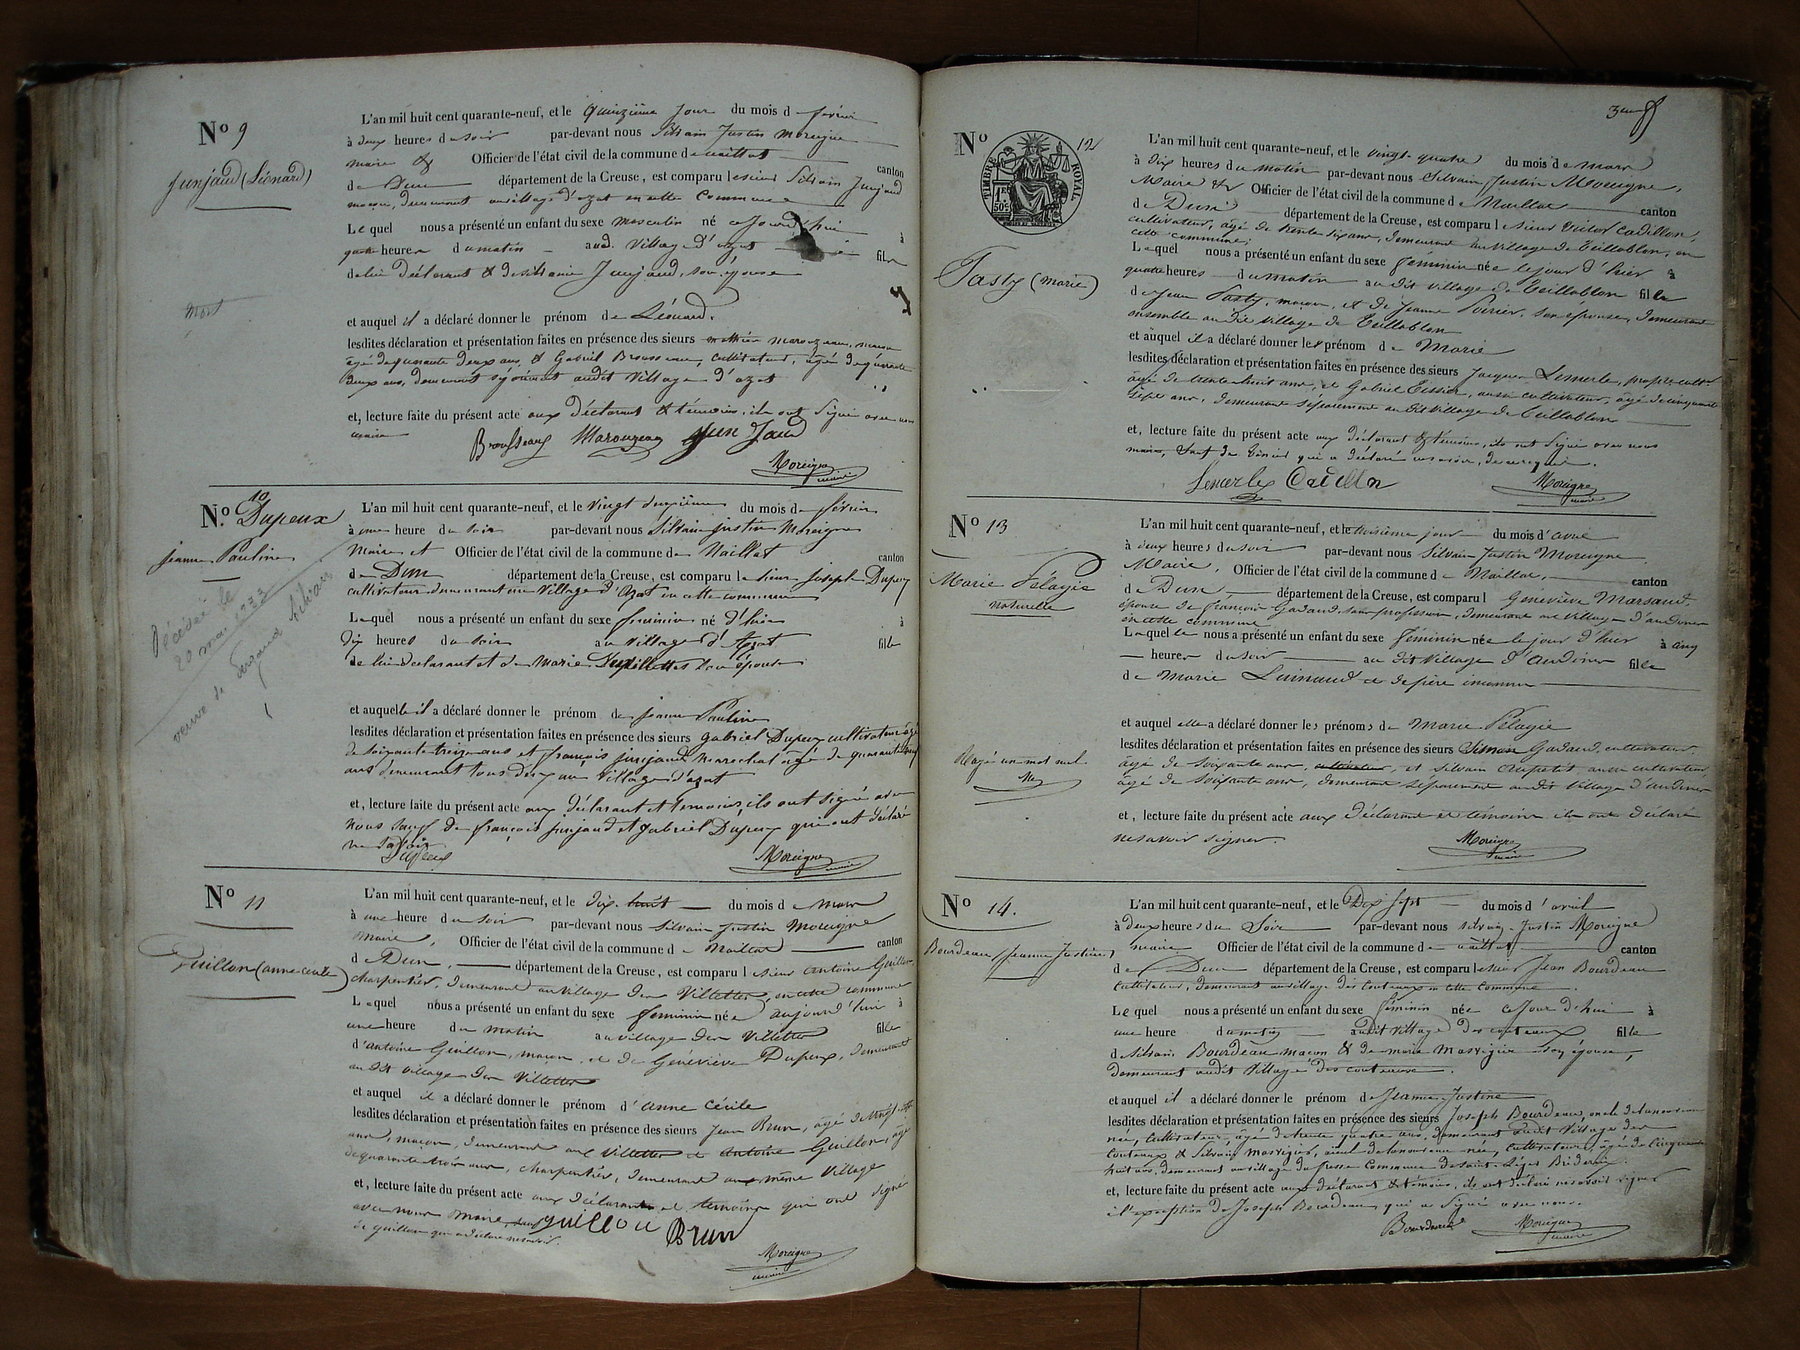 N° 9
Junjaud (Léonard)
Mort
L'an mil huit cent quarante-neuf, et le quinzième jour du mois de février
à deux heures du soir par-devant nous Silvain Justin Moreigne
maire & Officier de l'état civil de la commune de naillat canton
de Dun département de la Creuse, est comparu le sieur Silvain Junjaud
maçon, demeurant au village d'azat en cette commune
Lequel nous a présenté un enfant du sexe masculin né cejourd'hui à
quatre heures du matin audit village d'azat fils
de lui déclarant & de silvanie Junjaud, son épouse
et auquel il a déclaré donner le prénom de Léonard.
lesdites déclaration et présentation faites en présence des sieurs mathieu marouzeau, maçon
âgé de quarante deux ans, & Gabriel Brousseau, cultivateur, âgé de quarante
deux ans, demeurant séparément audit village d'azat
et, lecture faite du présent acte aux déclarant & témoins, ils ont signé avec nous
maire
Brousseau Marouzeau Jun Jaud
Moreigne
maire
N° 10 Dupeux
Jeanne Pauline
Décédée le
20 mai 1933
veuve de
L'an mil huit cent quarante-neuf, et le vingt deuxième du mois de février
à une heure du soir par-devant nous Silvain justin Moreigne
Maire et Officier de l'état civil de la commune de Naillat canton
de Dun département de la Creuse, est comparu le sieur joseph Dupeux
cultivateur demeurant au village d'Azat en cette commune
Lequel nous a présenté un enfant du sexe feminin né d'hier à
dix heures du soir au village d'Azat fille
de lui declarant et de Marie son épouse
et auquel il a déclaré donner le prénom de jeanne Pauline
lesdites déclaration et présentation faites en présence des sieurs gabriel Dupeux cultivateur âgé
de soixante treize ans et françois junjaud marechal âgé de quarante
ans demeurant tous deux au village d'azat
et, lecture faite du présent acte aux déclarant et temoins ils ont signé avec
nous sauf de françois junjaud et gabriel Dupeux qui ont déclaré
ne savoir
Dupeux
Moreigne
maire
N° 11
Guillon (anne cécile)
L'an mil huit cent quarante-neuf, et le dix huit du mois de mars
à une heure du soir par-devant nous Silvain Justin Moreigne
Maire, Officier de l'état civil de la commune de Naillat canton
de Dun, département de la Creuse, est comparu le sieur antoine Guillon
charpentier, demeurant au village des Villettes, en cette commune
Lequel nous a présenté un enfant du sexe féminin née aujourd'hui à
une heure du matin au village des Villettes fille
d'antoine Guillon, maçon, et de Géneviève Dupeux, demeurant
au dit village des Villettes
et auquel il a déclaré donner le prénom d'anne Cécile
lesdites déclaration et présentation faites en présence des sieurs Jean Brun, âgé de vingt
ans, maçon, demeurant aux Villettes et Antoine Guillon, âgé
de quarante trois ans, charpentier, demeurant au même village
et, lecture faite du présent acte aux déclarants et témoins qui ont signé
avec nous Maire, sauf guillon Brun
de guillon qui a déclaré ne savoir.
Moreigne
maire
N° 12
TIMBRE ROYAL
1 F. 50 c
Tasty (marie)
L'an mil huit cent quarante-neuf, et le vingt-quatre du mois de mars
à dix heures du matin par-devant nous Silvain Justin Moreigne,
Maire & Officier de l'état civil de la commune de Naillat canton
de Dun département de la Creuse, est comparu le sieur Victor Cadillon,
cultivateur, âgé de trente six ans, demeurant au village de Teilloblon, en
cette commune;
Lequel nous a présenté un enfant du sexe féminin née le jour d'hier à
quatre heures du matin au dit village de Teilloblon fille
de Jean Tasty, maçon, et de Jeanne Poirier, son épouse, demeurant
ensemble au dit village de Teilloblon
et auquel il a déclaré donner les prénom de Marie
lesdites déclaration et présentation faites en présence des sieurs Jacques Lemerle, propre. cultr
âgé de trente huit ans, et Gabriel Tissier, aussi cultivateur, âgé de cinquante
sept ans, demeurant séparément au dit village de Teilloblon
et, lecture faite du présent acte aux déclarant & témoins, ils ont signé avec nous
maire, sauf de Tissier qui a déclaré ne savoir, de ce requis.
Lemerle Cadillon
Moreigne
maire
N° 13
Marie Pélagie
naturelle
Rayé un mot nul.
L'an mil huit cent quarante-neuf, et le troisième jour du mois d'avril
à deux heures du soir par-devant nous Silvain Justin Moreigne
Maire, Officier de l'état civil de la commune de Naillat, canton
de Dun, département de la Creuse, est comparu Géneviève Marsaud,
épouse de françois Gadaud, sans profession, demeurant au village d'
en cette commune
Laquelle nous a présenté un enfant du sexe féminin née le jour d'hier à cinq
heures du soir au dit village d' fille
de Marie et de père inconnu
et auquel elle a déclaré donner les prénoms de Marie Pélagie
lesdites déclaration et présentation faites en présence des sieurs Simon Gadaud, cultivateur
âgé de soixante ans, cultivateur, et silvain crepetit, aussi cultivateur
âgé de soixante ans, demeurant séparément au dit village d'
et, lecture faite du présent acte aux déclarant et témoins ils ont déclaré
ne savoir signer.
Moreigne
maire
N° 14.
Bourdeau (Jeanne Justine)
L'an mil huit cent quarante-neuf, et le Dix sept du mois d'avril
à deux heures du Soir par-devant nous silvain Justin Moreigne
maire Officier de l'état civil de la commune de naillat canton
de Dun département de la Creuse, est comparu le sieur Jean Bourdeau
cultivateur, demeurant au village des Couteaux en cette commune
Lequel nous a présenté un enfant du sexe féminin née ce Jour d'hui à
une heure du matin audit village des couteaux fille
de silvain Bourdeau maçon & de marie Marsigier son épouse,
demeurant audit village des couteaux.
et auquel il a déclaré donner le prénom de Jeanne-Justine
lesdites déclaration et présentation faites en présence des sieurs Joseph Bourdeau, oncle du nouveau
née, cultivateur, âgé de trente quatre ans, demeurant audit village des
Couteaux & silvain Marsigier, aieul du nouveau née, cultivateur, âgé de cinquante
huit ans, demeurant au village du fresse commune de saint-Léger Bridereix.
et, lecture faite du présent acte aux déclarant & témoins, ils ont déclaré ne savoir signer
à l'exception de Joseph Bourdeau, qui a signé avec nous.
Bourdeau
Moreigne
maire